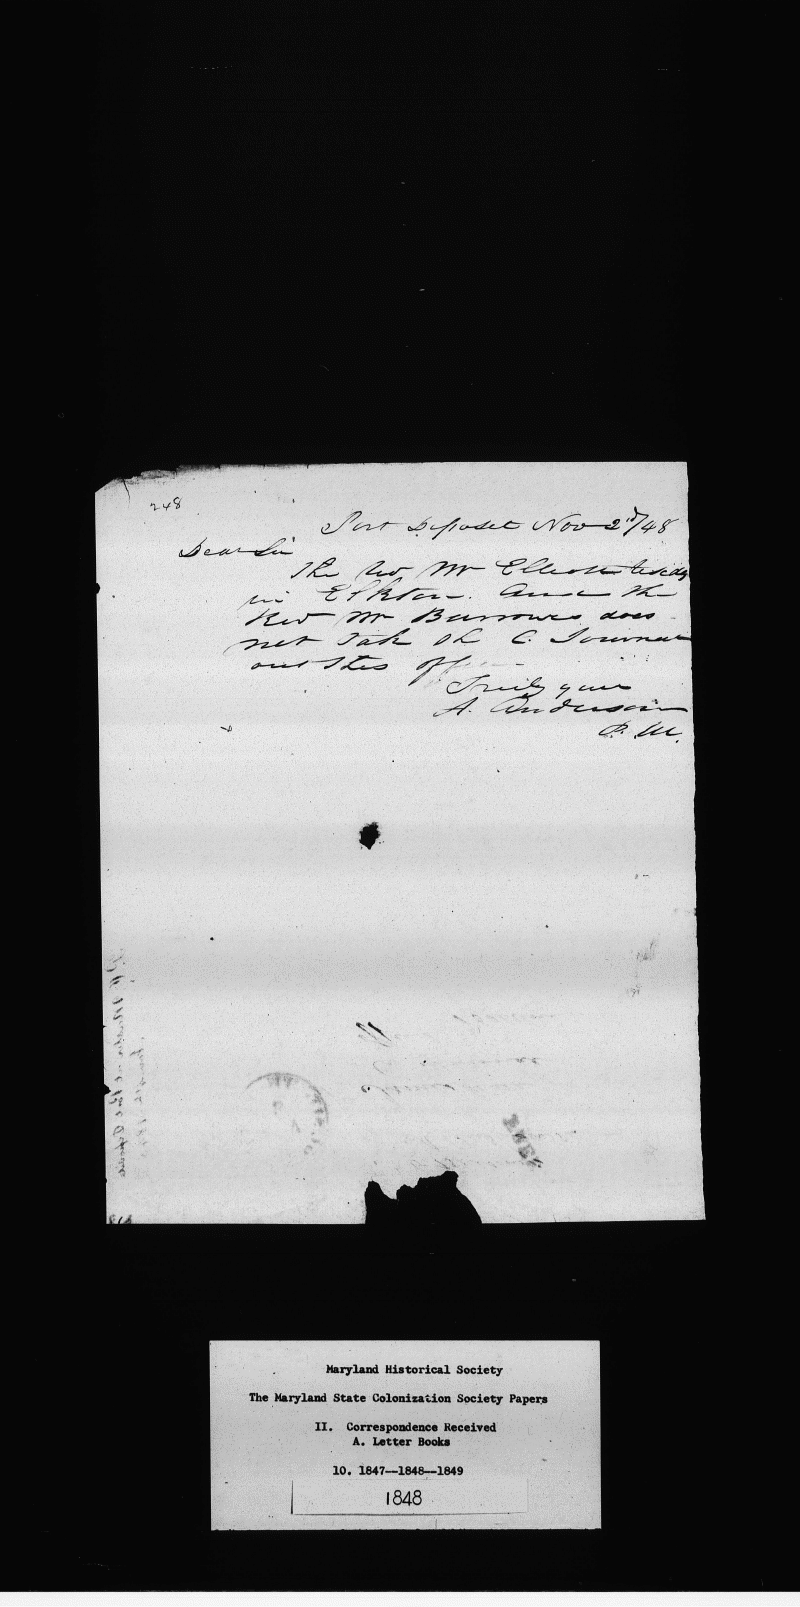 248
Port Deposit Nov 2d/48
Dear Sir
The Rev Mr Elliott resids
in Elkton. And the
Rev Mr Burrows does
not Tak the C. Journal
out this office
Truly yours
A. Anderson
P. M.
Maryland Historical Society
The Maryland State Colonization Society Papers
II. Correspondence Received
A. Letter Books
10. 1847--1848--1849
1848